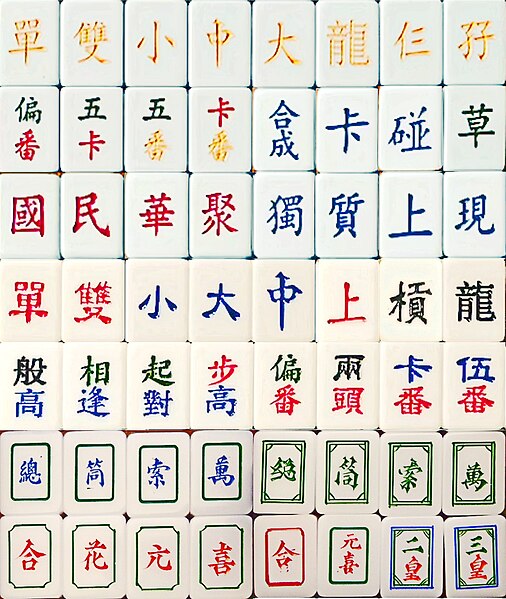 單 雙 小 中 大 龍 仨 孖
偏番 五卡 五番 卡番 合成 卡 碰 草
國 民 華 聚 獨 質 上 現
單 雙 小 大 中 上 槓 龍
般高 相逢 起對 步高 偏番 兩頭 卡番 伍番
總 筒 索 萬 總 筒 索 萬
合 花 元 喜 合 元喜 二皇 三皇